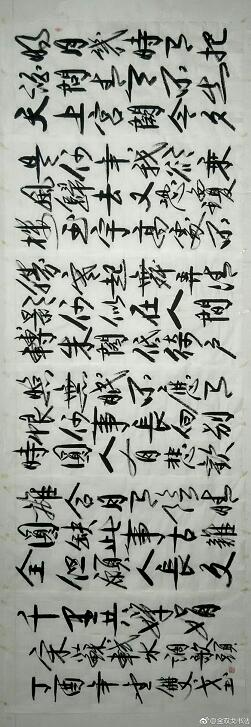 明月幾時有把
酒問青天不知
天上宮闕今夕
是何年我欲乘
風歸去又恐瓊
樓玉宇高處不
勝寒起舞弄清
影何似在人間
轉朱閣低綺戶
照無眠不應有
恨何事長向別
時圓人有悲歡
離合月有陰晴
圓缺此事古難
全但願人長久
千里共嬋娟
宋蘇軾水調歌頭
丁酉年
@金双文书法